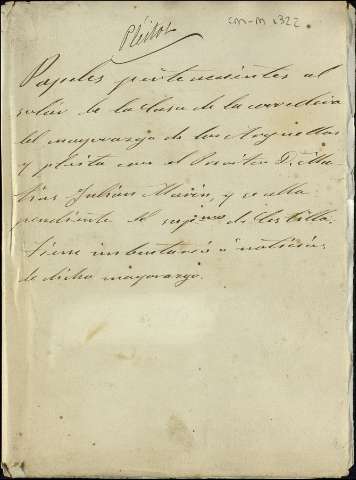 Pleitos
CM-M 1322
Papeles pertenecientes al
solar de la Casa de la corredera
del mayorazgo de los Arguellos
y pleito con el Presvitero D. Ma-
tias Julian Marin, y se alla
pendiente de sup.mo de Castilla.
tiene imbentario ó noticia
de dicho mayorazgo.